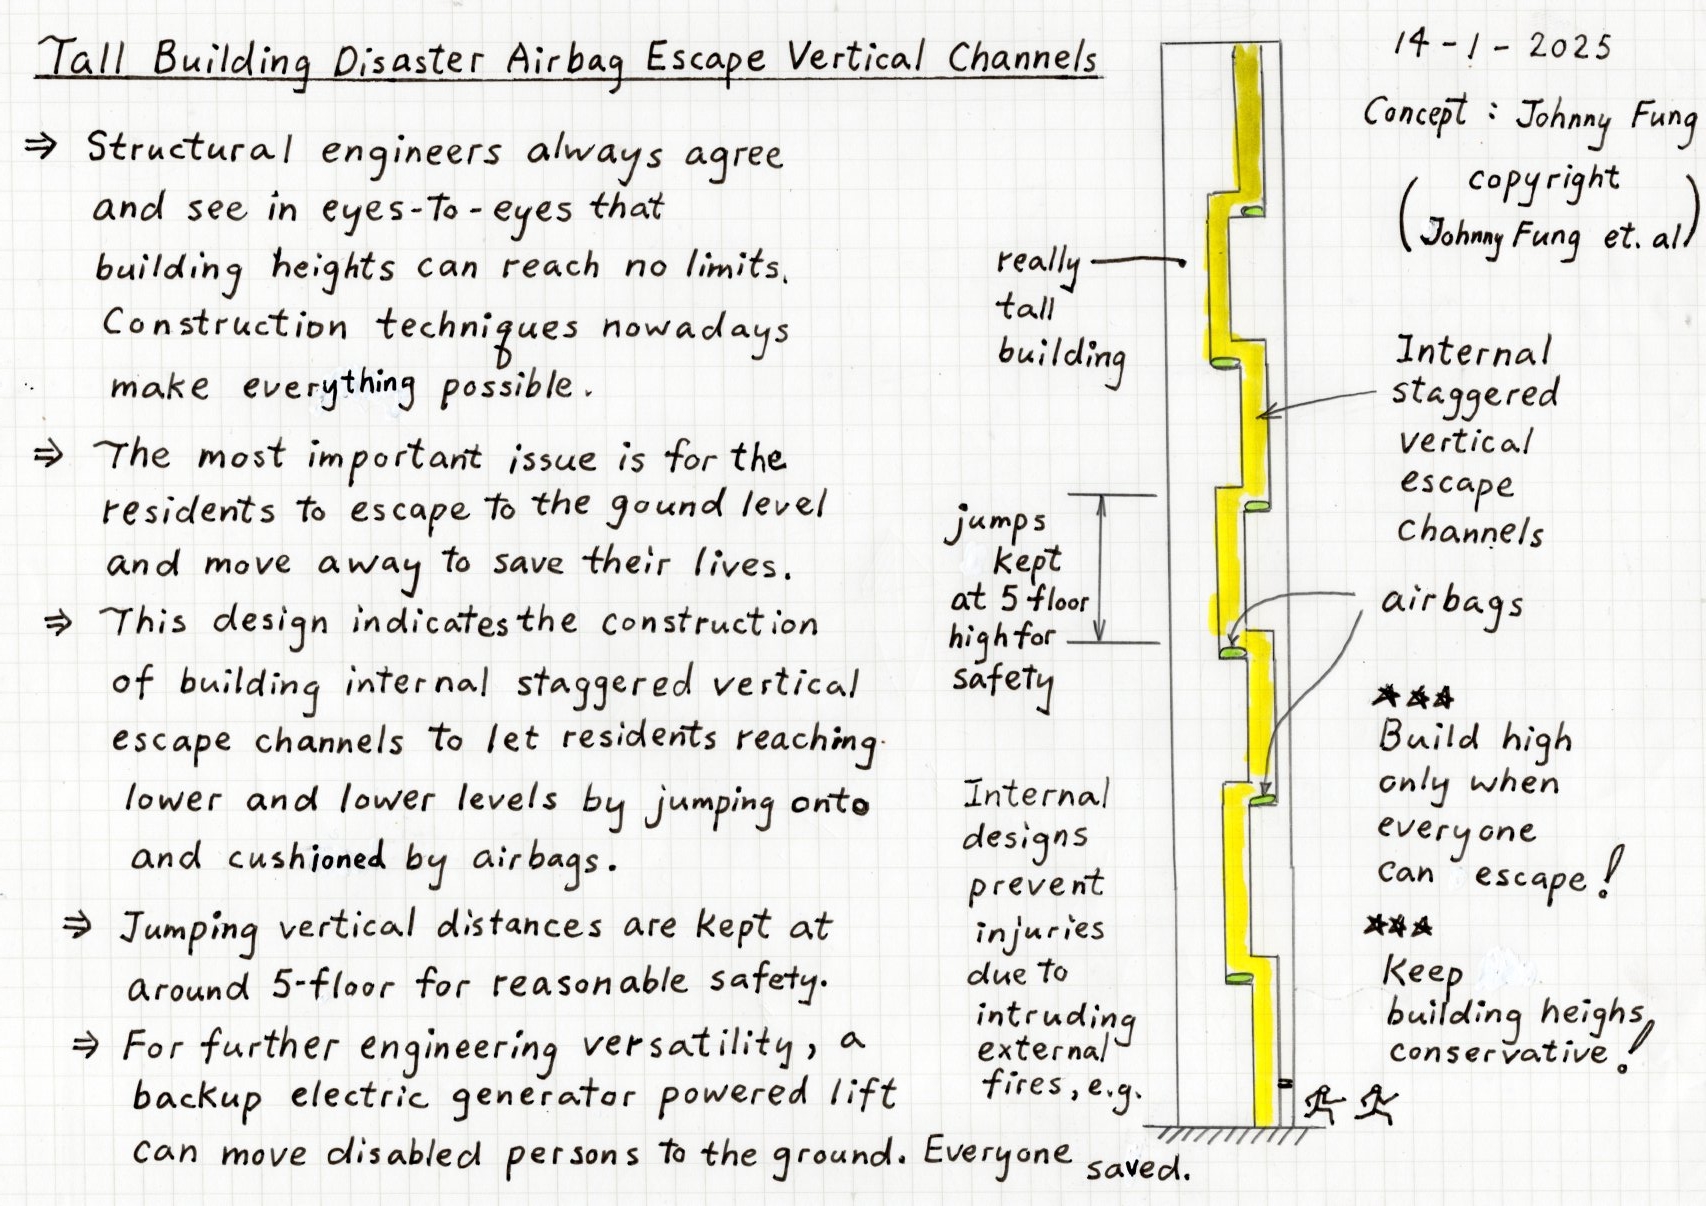 Tall Building Disaster Airbag Escape Vertical Channels
⇒ Structural engineers always agree
and see in eyes-to-eyes that
building heights can reach no limits.
Construction techniques nowadays
make everything possible.
⇒ The most important issue is for the
residents to escape to the gound level
and move away to save their lives.
⇒ This design indicates the construction
of building internal staggered vertical
escape channels to let residents reaching
lower and lower levels by jumping onto
and cushioned by airbags.
⇒ Jumping vertical distances are kept at
around 5-floor for reasonable safety.
⇒ For further engineering versatility, a
backup electric generator powered lift
can move disabled persons to the ground. Everyone saved.
really
tall
building
jumps
kept
at 5 floor
high for
safety
Internal
designs
prevent
injuries
due to
intruding
external
fires, e.g.
14-1-2025
Concept : Johnny Fung
(copyright
Johnny Fung et. al)
Internal
staggered
vertical
escape
channels
airbags
★★★
Build high
only when
everyone
can escape!
★★★
Keep
building heighs
conservative!